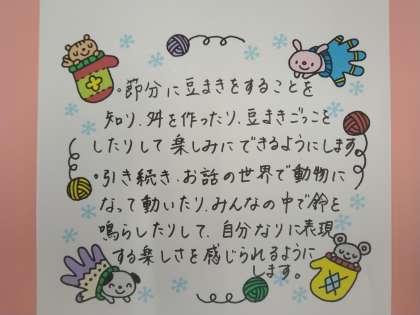 。節分に豆まきをすることを
知り、舛を作ったり、豆まきごっこを
したりして楽しみにできるようにします。
。引き続き、お話の世界で動物に
なって動いたり、みんなの中で鈴を
鳴らしたりして、自分なりに表現
する楽しさを感じられるように
します。